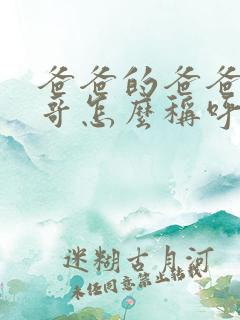 爸爸的爸爸
哥怎麼稱呼
迷糊古月河
未任同意禁止転載